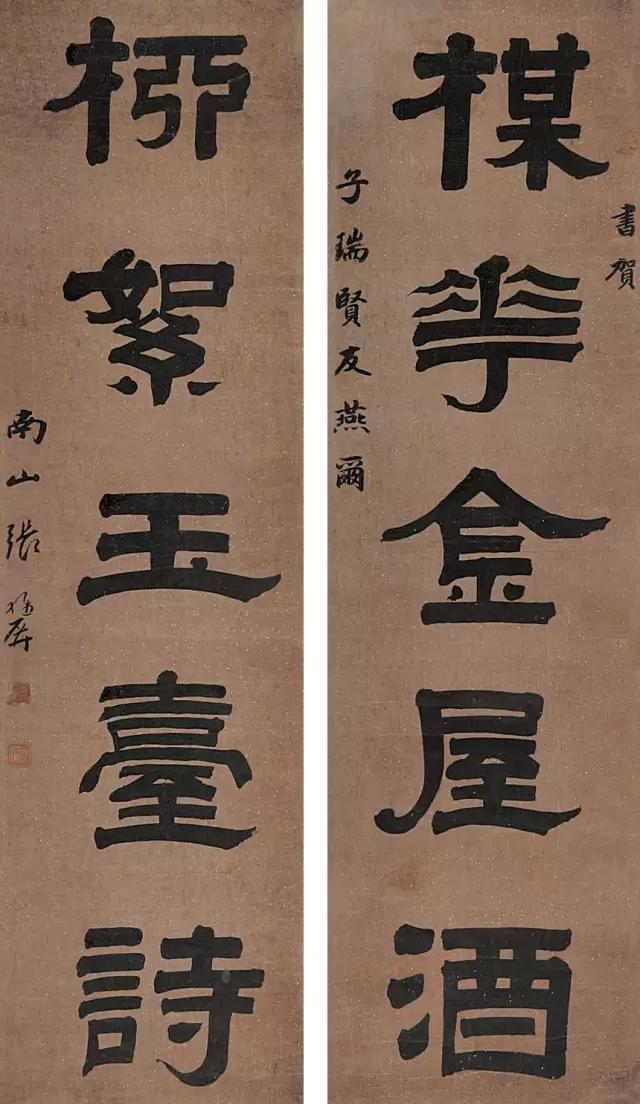 書賀
楳華金屋酒
子瑞賢友燕爾
柳絮玉臺詩
南山張維屏